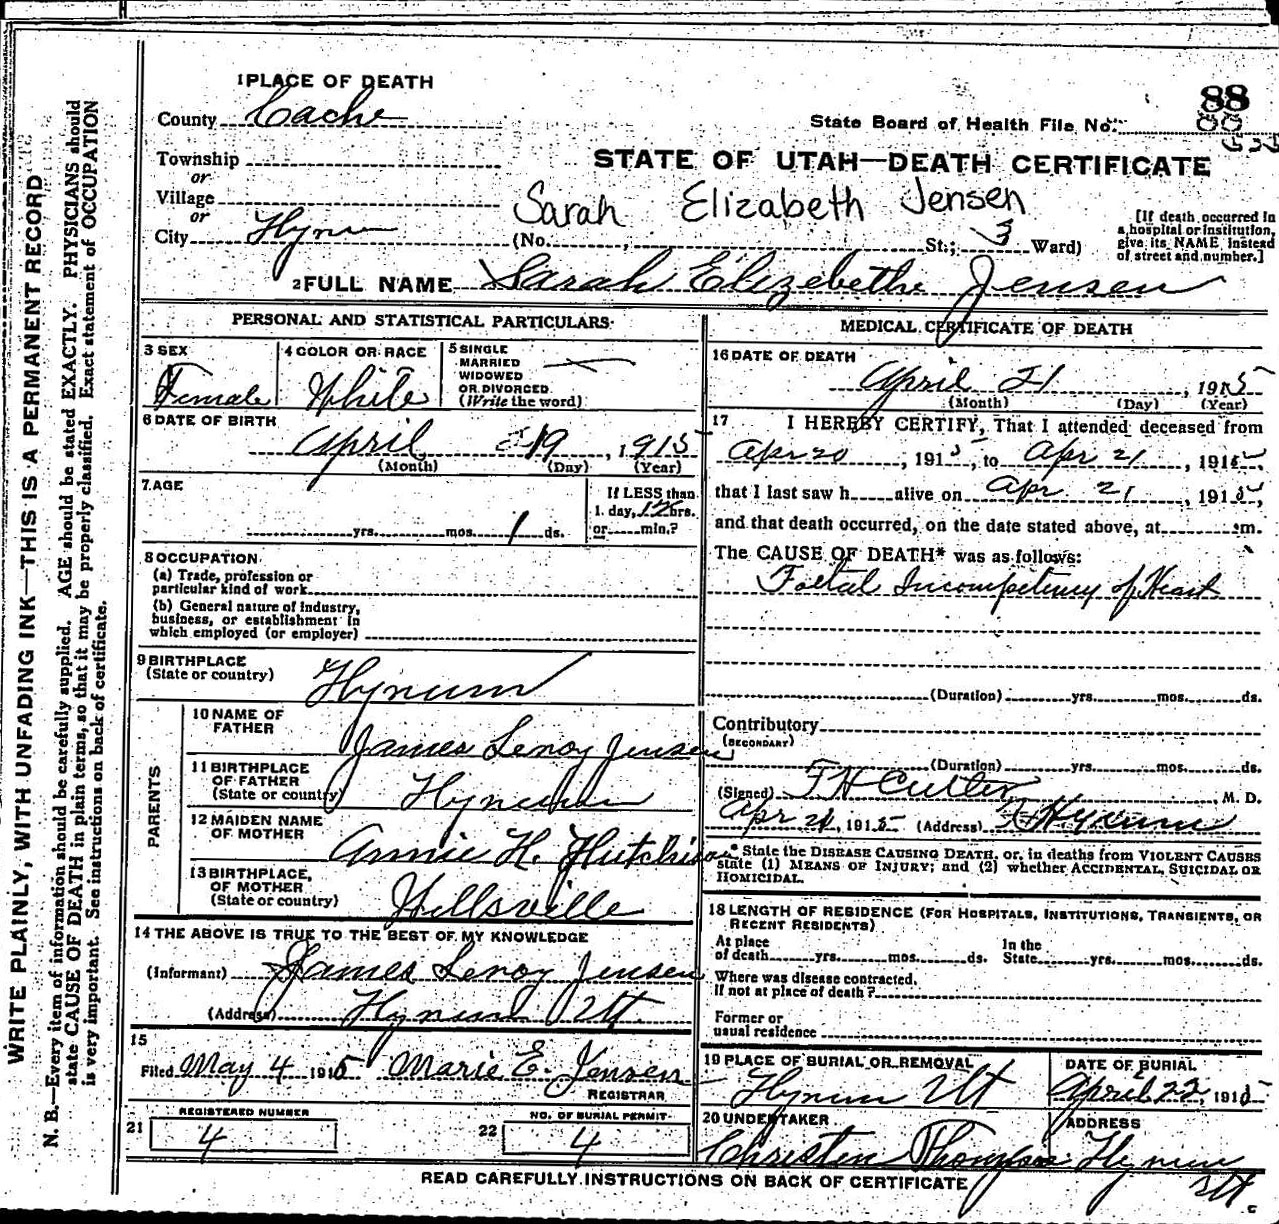 WRITE PLAINLY, WITH UNFADING INK—THIS IS A PERMANENT RECORD
N. B.—Every item of information should be carefully supplied. AGE should be stated EXACTLY. PHYSICIANS should
state CAUSE OF DEATH in plain terms, so that it may be properly classified. Exact statement of OCCUPATION
is very important. See instructions on back of certificate.
1 PLACE OF DEATH
County Cache
Township
or
Village
or
City Hyrum
88
State Board of Health File No.
STATE OF UTAH—DEATH CERTIFICATE
Sarah Elizabeth Jensen
(No. , St.; 3 Ward)
[If death occurred in
a hospital or institution,
give its NAME instead
of street and number.]
2 FULL NAME Sarah Elizebethe Jensen
PERSONAL AND STATISTICAL PARTICULARS
3 SEX
Female
4 COLOR OR RACE
White
5 SINGLE
MARRIED
WIDOWED
OR DIVORCED
(Write the word)
6 DATE OF BIRTH
April 19, 1915
(Month) (Day) (Year)
7 AGE
If LESS than
1 day, 12 hrs.
yrs. mos. 1 ds. or min.?
8 OCCUPATION
(a) Trade, profession or
particular kind of work
(b) General nature of industry,
business, or establishment in
which employed (or employer)
9 BIRTHPLACE
(State or country) Hyrum
PARENTS
10 NAME OF
FATHER James Leroy Jensen
11 BIRTHPLACE
OF FATHER
(State or country) Hyrum
12 MAIDEN NAME
OF MOTHER Annie H. Hutchison
13 BIRTHPLACE
OF MOTHER
(State or country) Hillsville
14 THE ABOVE IS TRUE TO THE BEST OF MY KNOWLEDGE
(Informant) James Leroy Jensen
(Address) Hyrum Ut.
15
Filed May 4 1915 Marie E. Jensen
REGISTRAR
REGISTERED NUMBER
21 4
NO. OF BURIAL PERMIT
22 4
MEDICAL CERTIFICATE OF DEATH
16 DATE OF DEATH
April 21, 1915
(Month) (Day) (Year)
17 I HEREBY CERTIFY, That I attended deceased from
Apr 20, 1915, to Apr 21, 1915,
that I last saw h alive on Apr 21, 1915,
and that death occurred, on the date stated above, at m.
The CAUSE OF DEATH* was as follows:
Foetal Incompetency of Heart
(Duration) yrs. mos. ds.
Contributory
(SECONDARY)
(Duration) yrs. mos. ds.
(Signed) F H Cutler, M. D.
Apr 21, 1915 (Address) Hyrum
* State the DISEASE CAUSING DEATH, or, in deaths from VIOLENT CAUSES
state (1) MEANS OF INJURY; and (2) whether ACCIDENTAL, SUICIDAL OR
HOMICIDAL.
18 LENGTH OF RESIDENCE (FOR HOSPITALS, INSTITUTIONS, TRANSIENTS, OR
RECENT RESIDENTS)
At place In the
of death yrs. mos. ds. State yrs. mos. ds.
Where was disease contracted,
if not at place of death?
Former or
usual residence
19 PLACE OF BURIAL OR REMOVAL
Hyrum Ut
DATE OF BURIAL
April 22, 1915
20 UNDERTAKER
Christen Thompson
ADDRESS
Hyrum
Ut.
READ CAREFULLY INSTRUCTIONS ON BACK OF CERTIFICATE